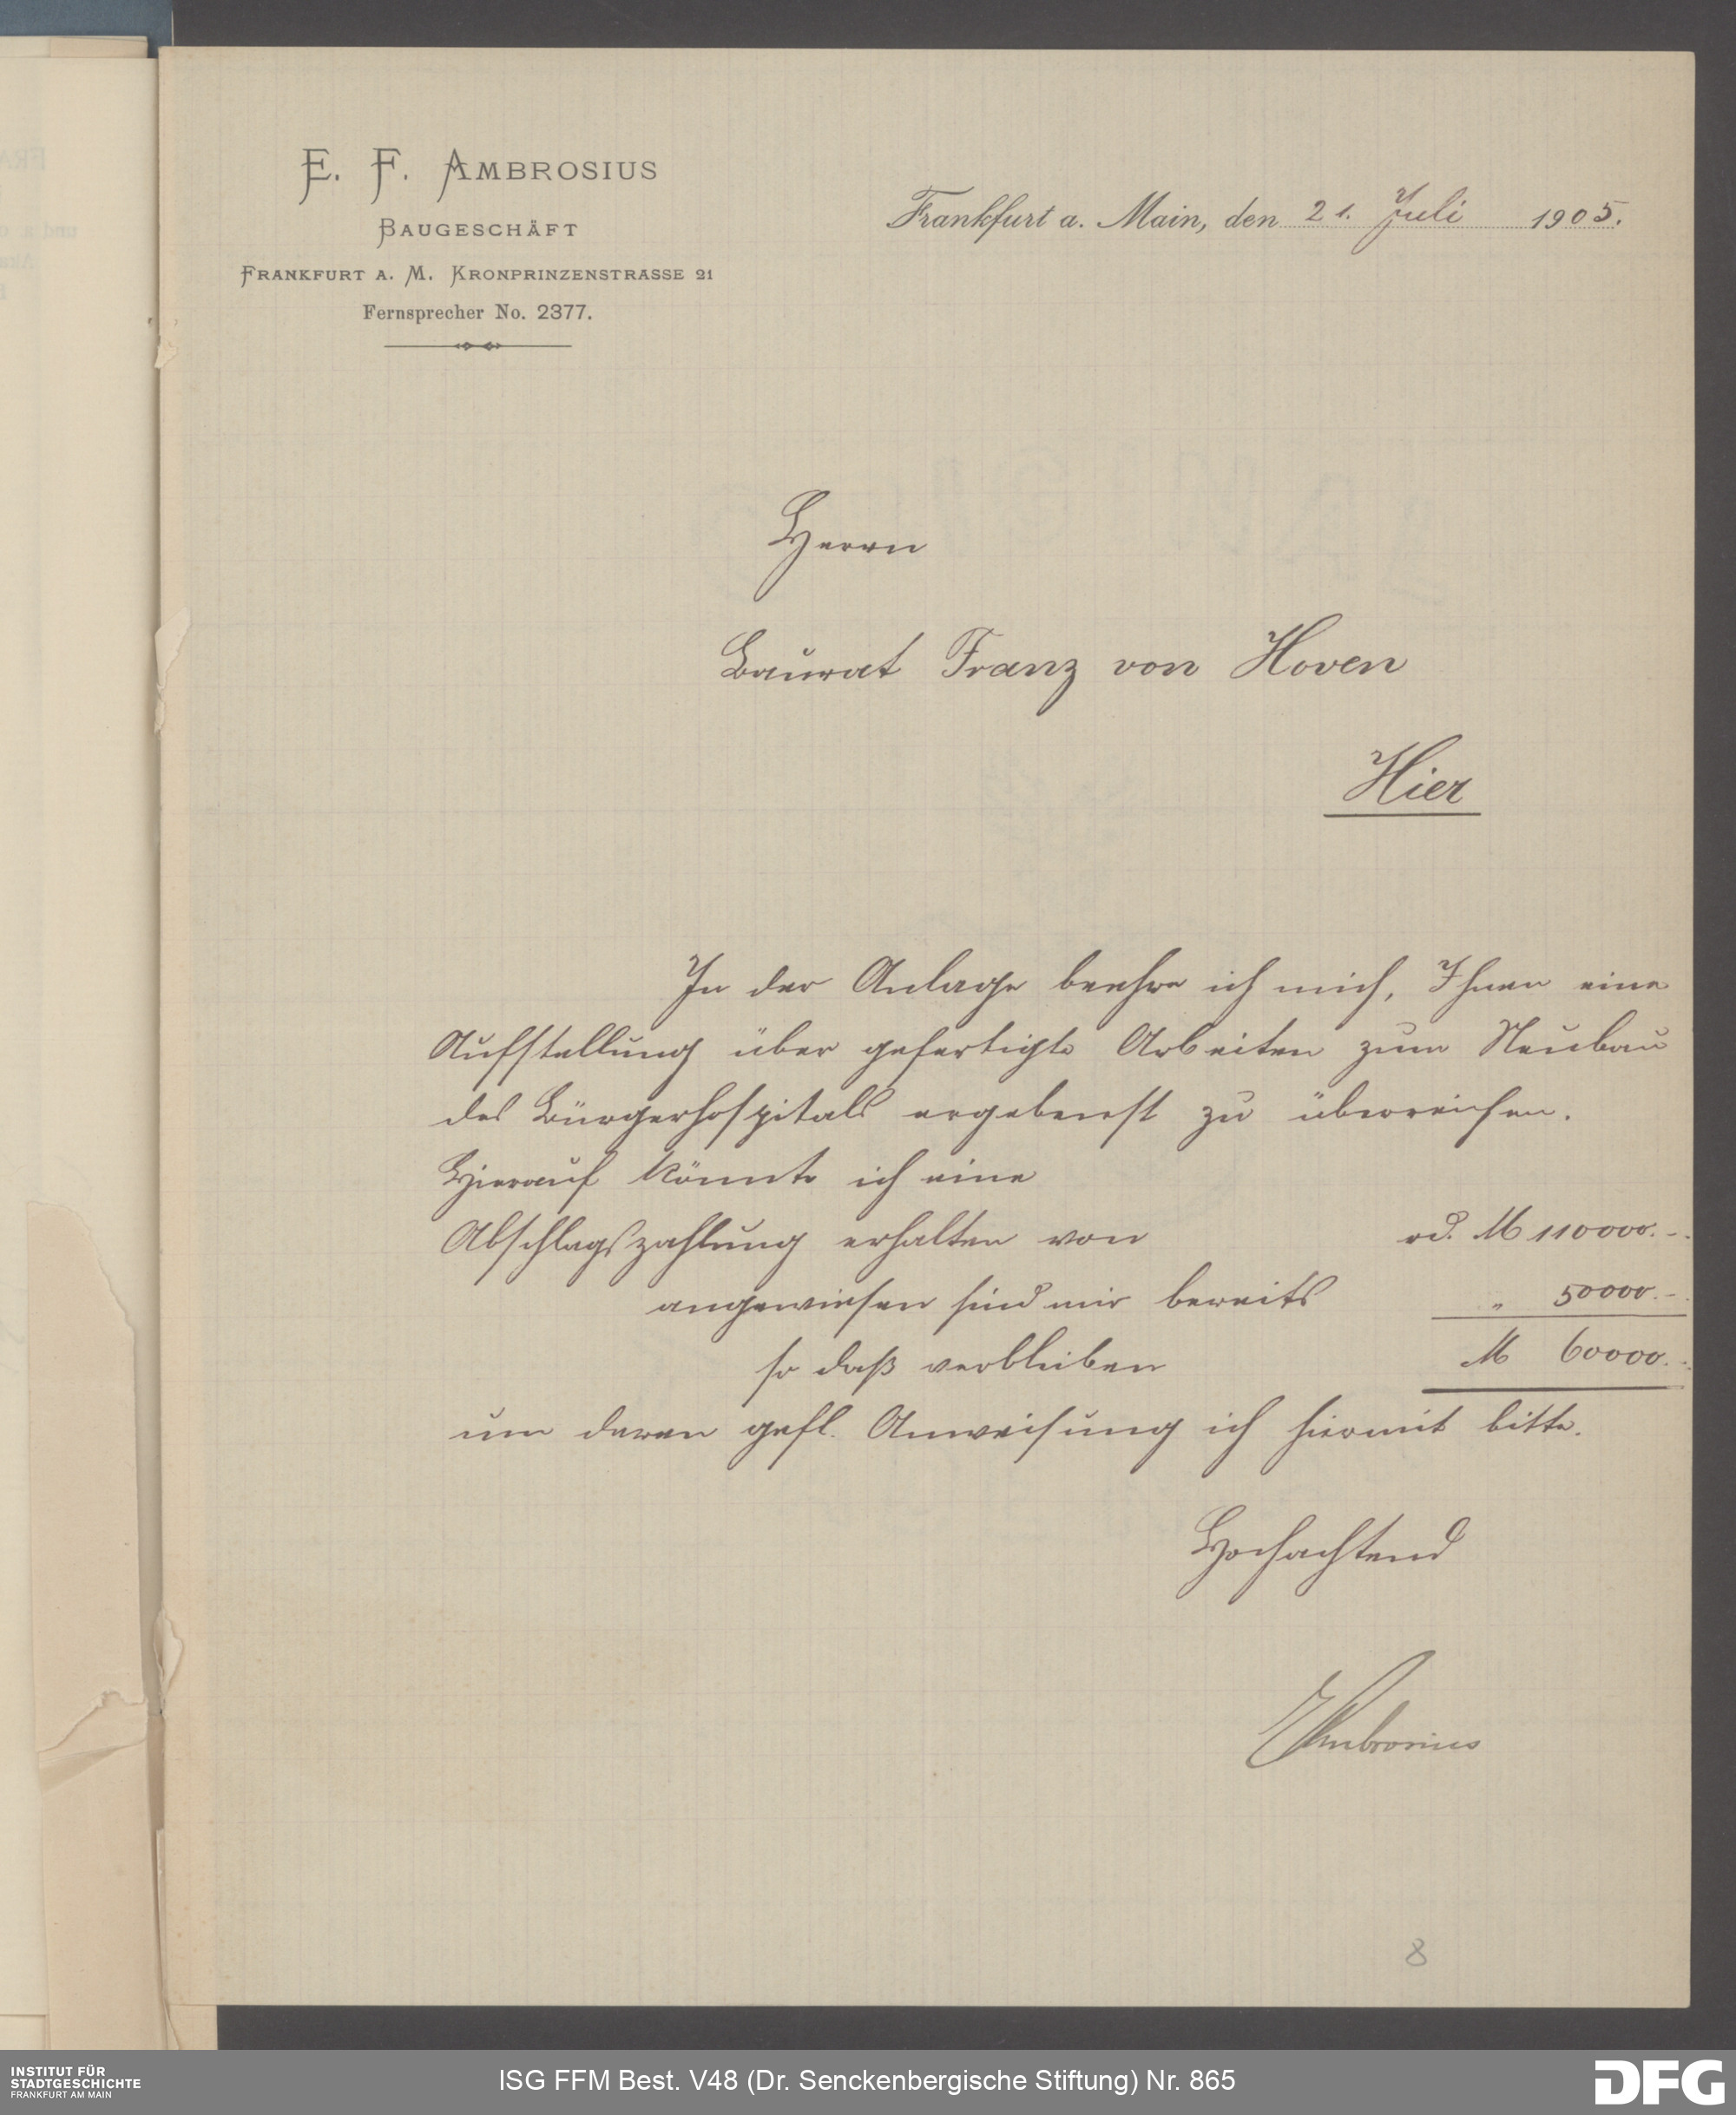 E. F. AMBROSIUS
BAUGESCHÄFT
FRANKFURT A. M. KRONPRINZENSTRASSE 21
Fernsprecher No. 2377.
Frankfurt a. Main, den 21. Juli 1905.
Herrn
Baurat Franz von Hoven
Hier
In der Anlage beehre ich mich, Ihnen eine
Aufstellung über gefertigte Arbeiten zum Neubau
des Bürgerhospitals ergebenst zu überreichen.
Hierauf könnte ich eine
Abschlagszahlung erhalten von rd. M 110000.-.
angewiesen sind mir bereits " 50000.-.
so daß verbleiben M 60000.-.
um deren gefl. Anweisung ich hiermit bitte.
Hochachtend
EAmbrosius
8
INSTITUT FÜR
STADTGESCHICHTE
FRANKFURT AM MAIN
ISG FFM Best. V48 (Dr. Senckenbergische Stiftung) Nr. 865
DFG